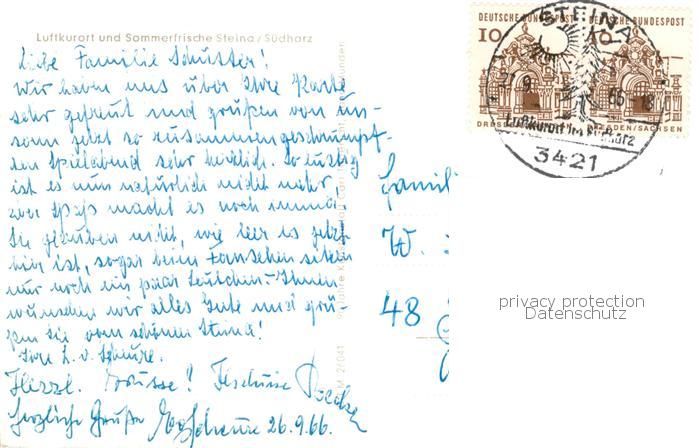 Luftkurort und Sommerfrische Steina/Südharz
Liebe Familie Schuster!
Wir haben uns über Ihre Karte
sehr gefreut und grüßen von un-
serm jetzt so zusammengeschrumpf-
ten Spielabend sehr herzlich. So lustig
ist es nun natürlich nicht mehr,
aber Spaß macht es noch immer.
Sie glauben nicht, wie leer es jetzt
hier ist, sogar beim Fernsehen sitzen
nur noch ein paar Leutchen. Ihnen
wünschen wir alles Gute und grü-
ßen Sie vom schönen Steina!
Ihre
Herzl. Grüsse!
Herzliche Grüße 26.9.66.
Famili
W.
48
DEUTSCHE BUNDESPOST DEUTSCHE BUNDESPOST
10 10
STEINA
Luftkurort im Südharz
3421
DRESDEN/SACHSEN
privacy protection
Datenschutz